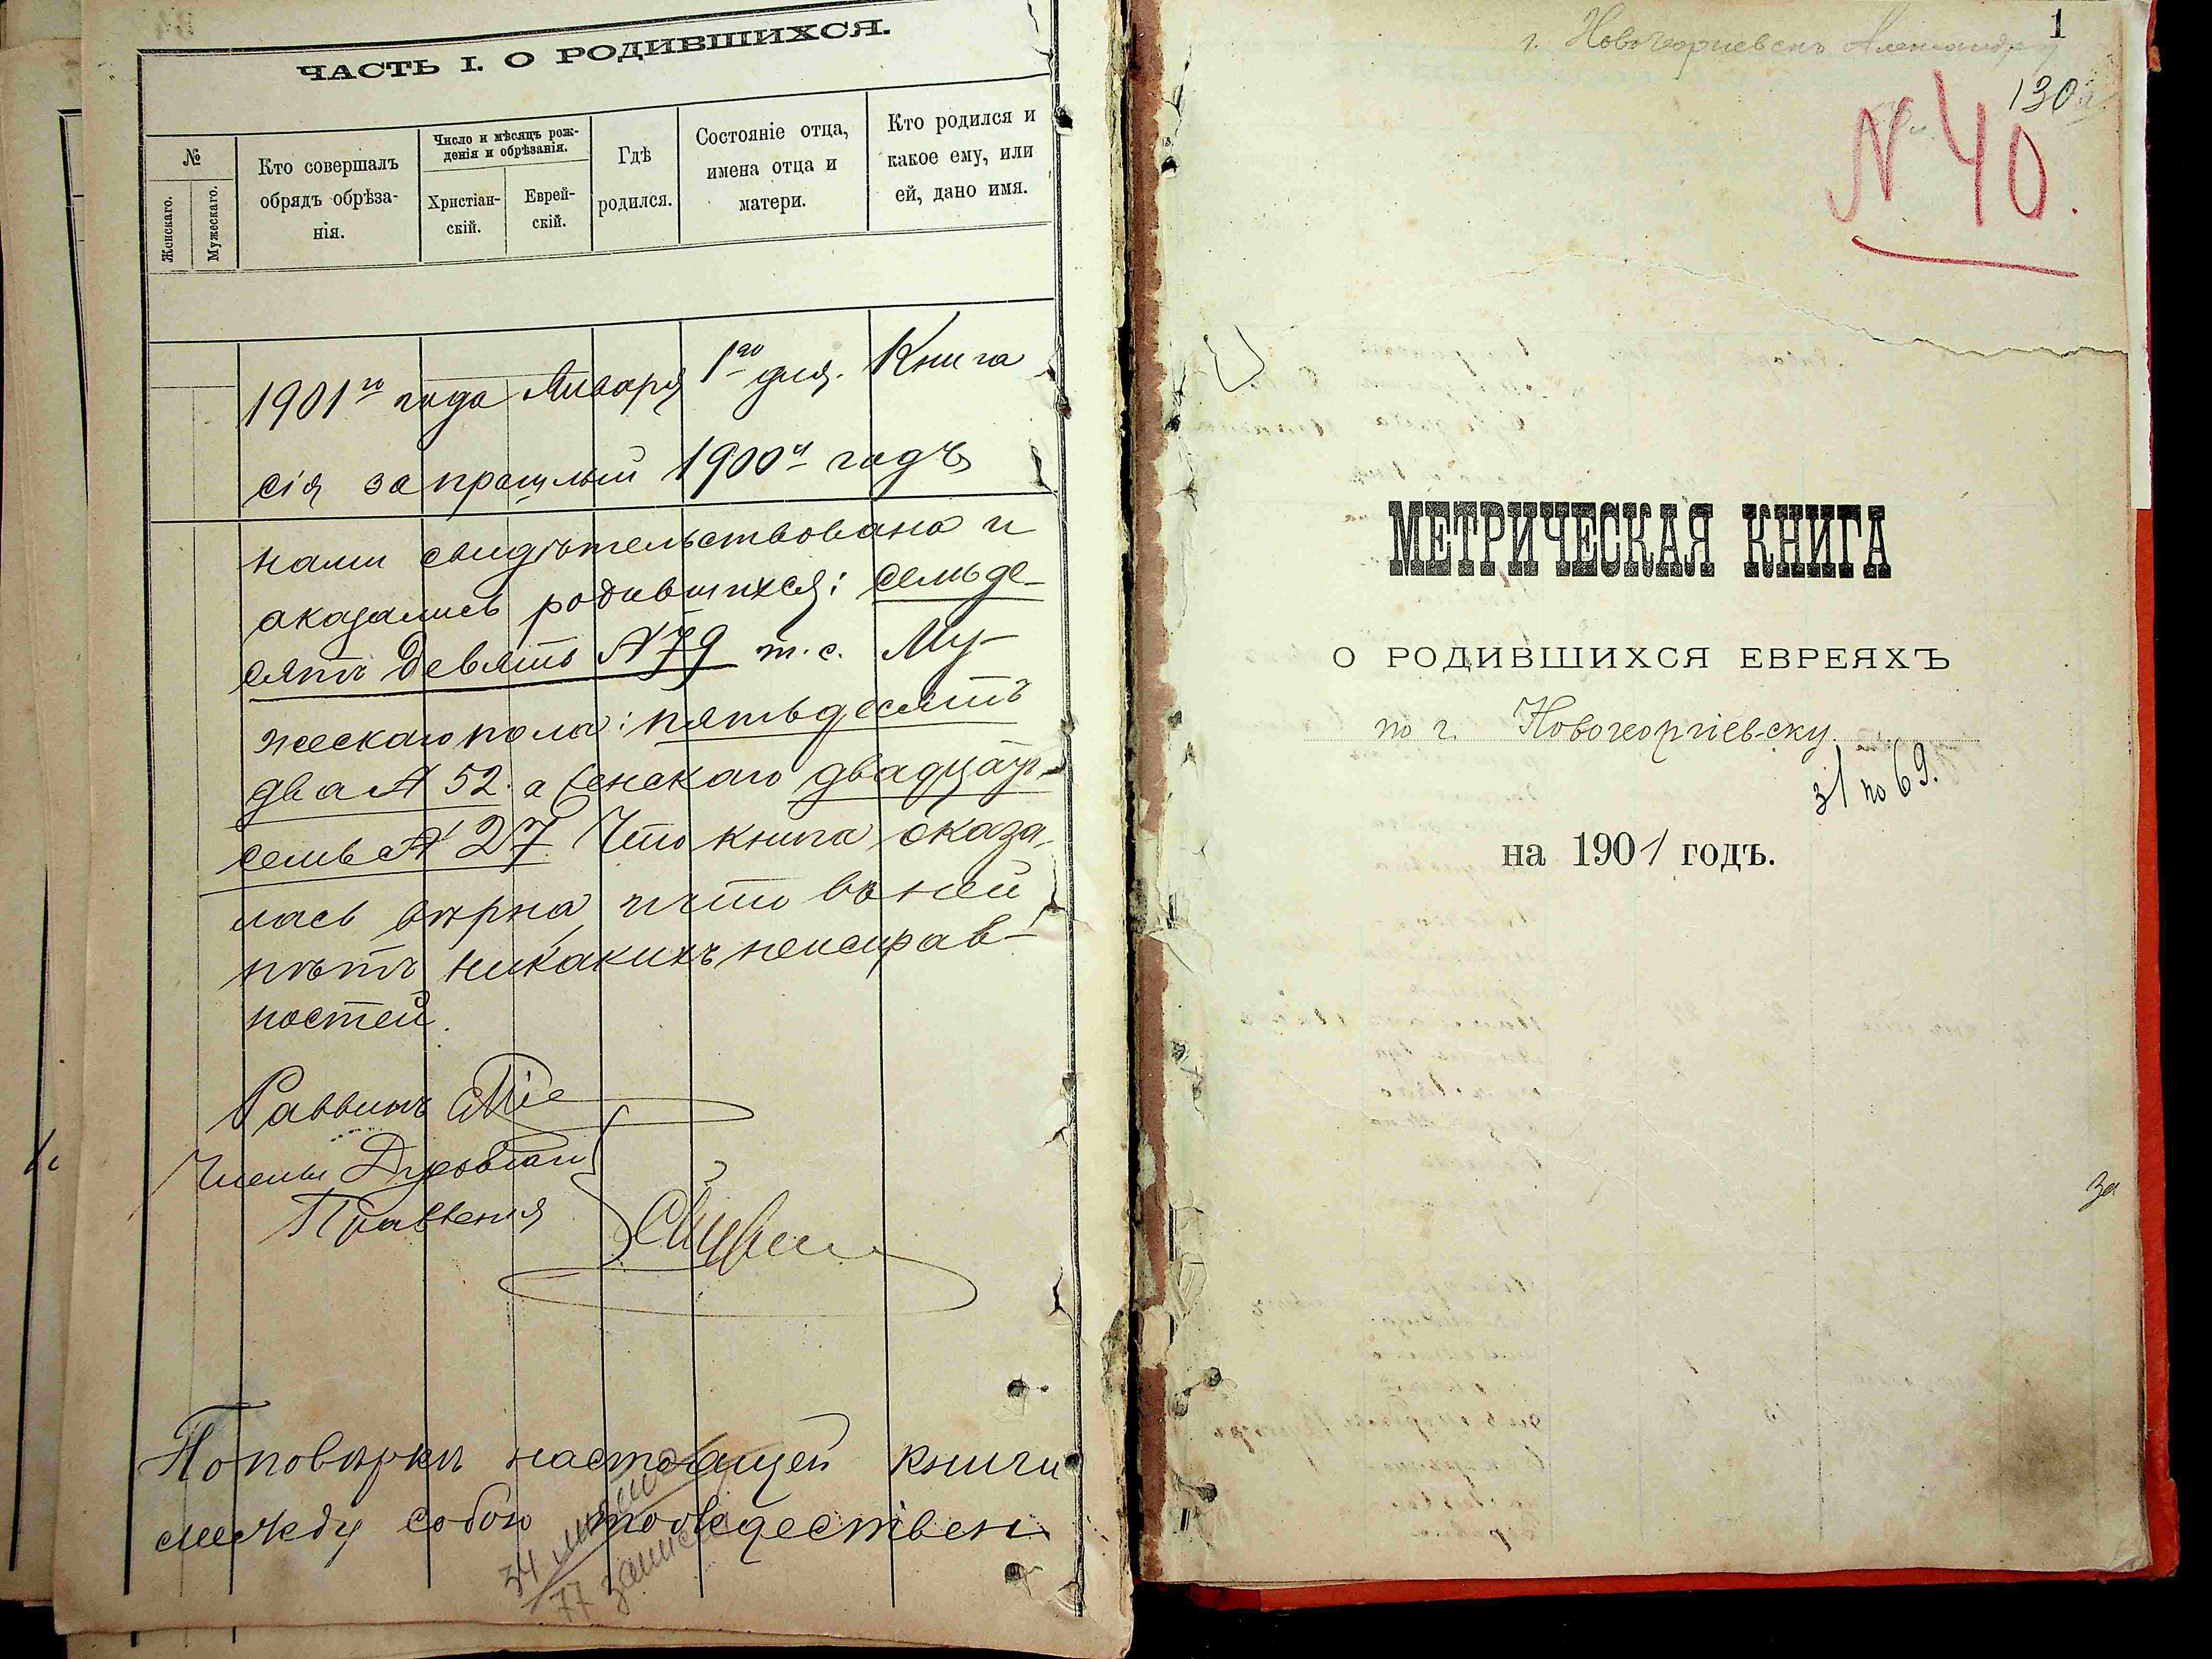 ЧАСТЬ I. О РОДИВШИХСЯ.
№
Женскаго.
Мужескаго.
Кто совершалъ
обрядъ обрѣза-
нія.
Число и мѣсяцъ рож-
денія и обрѣзанія.
Христіан-
скій.
Еврей-
скій.
Гдѣ
родился.
Состояніе отца,
имена отца и
матери.
Кто родился и
какое ему, или
ей, дано имя.
1901го года Января 1го дня. Книга
сія за прашлый 1900й годъ
нами свидѣтельствована и
аказались родившихся: семьде-
сятъ девять № 79 т.е. Му-
жескаго пола: пятьдесятъ
два № 52. а женскаго двадцать
семь № 27 Что книга оказа-
лась вѣрна, и что въ ней
нѣтъ никакихъ неисправ-
ностей.
Раввинъ
Члены Духовнаго
Правленія
По повѣркѣ настоящей книги
между собою тождествен
34 листа
77 записей
1
г. Новогеоргиевскъ
130
№ 40.
МЕТРИЧЕСКАЯ КНИГА
О РОДИВШИХСЯ ЕВРЕЯХЪ
по г. Новогеоргіевску.
з 1 по 69.
на 1901 годъ.